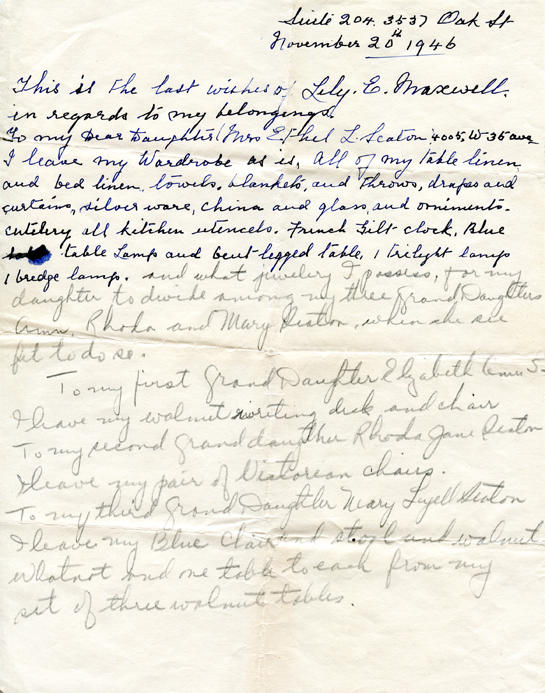 Suite 204. 3537 Oak St
November 20th 1946
This is the last wishes of Lily. E. Maxwell.
in regards to my belongings.
To my Dear Daughter (Mrs Ethel L Seaton 4005. W-35 ave
I leave my Wardrobe as is, all of my table linen
and bed linen, towels, blankets, and throws, drapes and
curtains, silver ware, china and glass and orniments.
cutelery all kitchen utencels. French Gilt clock, Blue
table Lamp and bent-legged table, 1 trilight lamp
1 bredge lamp. and what jewelery I possess, for my
daughter to divide among my three Grand Daughters
Ann, Rhoda and Mary Seaton, when she see
fit to do so.
To my first Grand Daughter Elizabeth Ann S-
I leave my walnut writing desk and chair
To my second Grand daughter Rhoda Jane Seaton
I leave my pair of Victorean chairs.
To my third Grand Daughter Mary Lyell Seaton
I leave my Blue Chair and stool and walnut
whatnot and one table to each from my
set of three walnut tables.